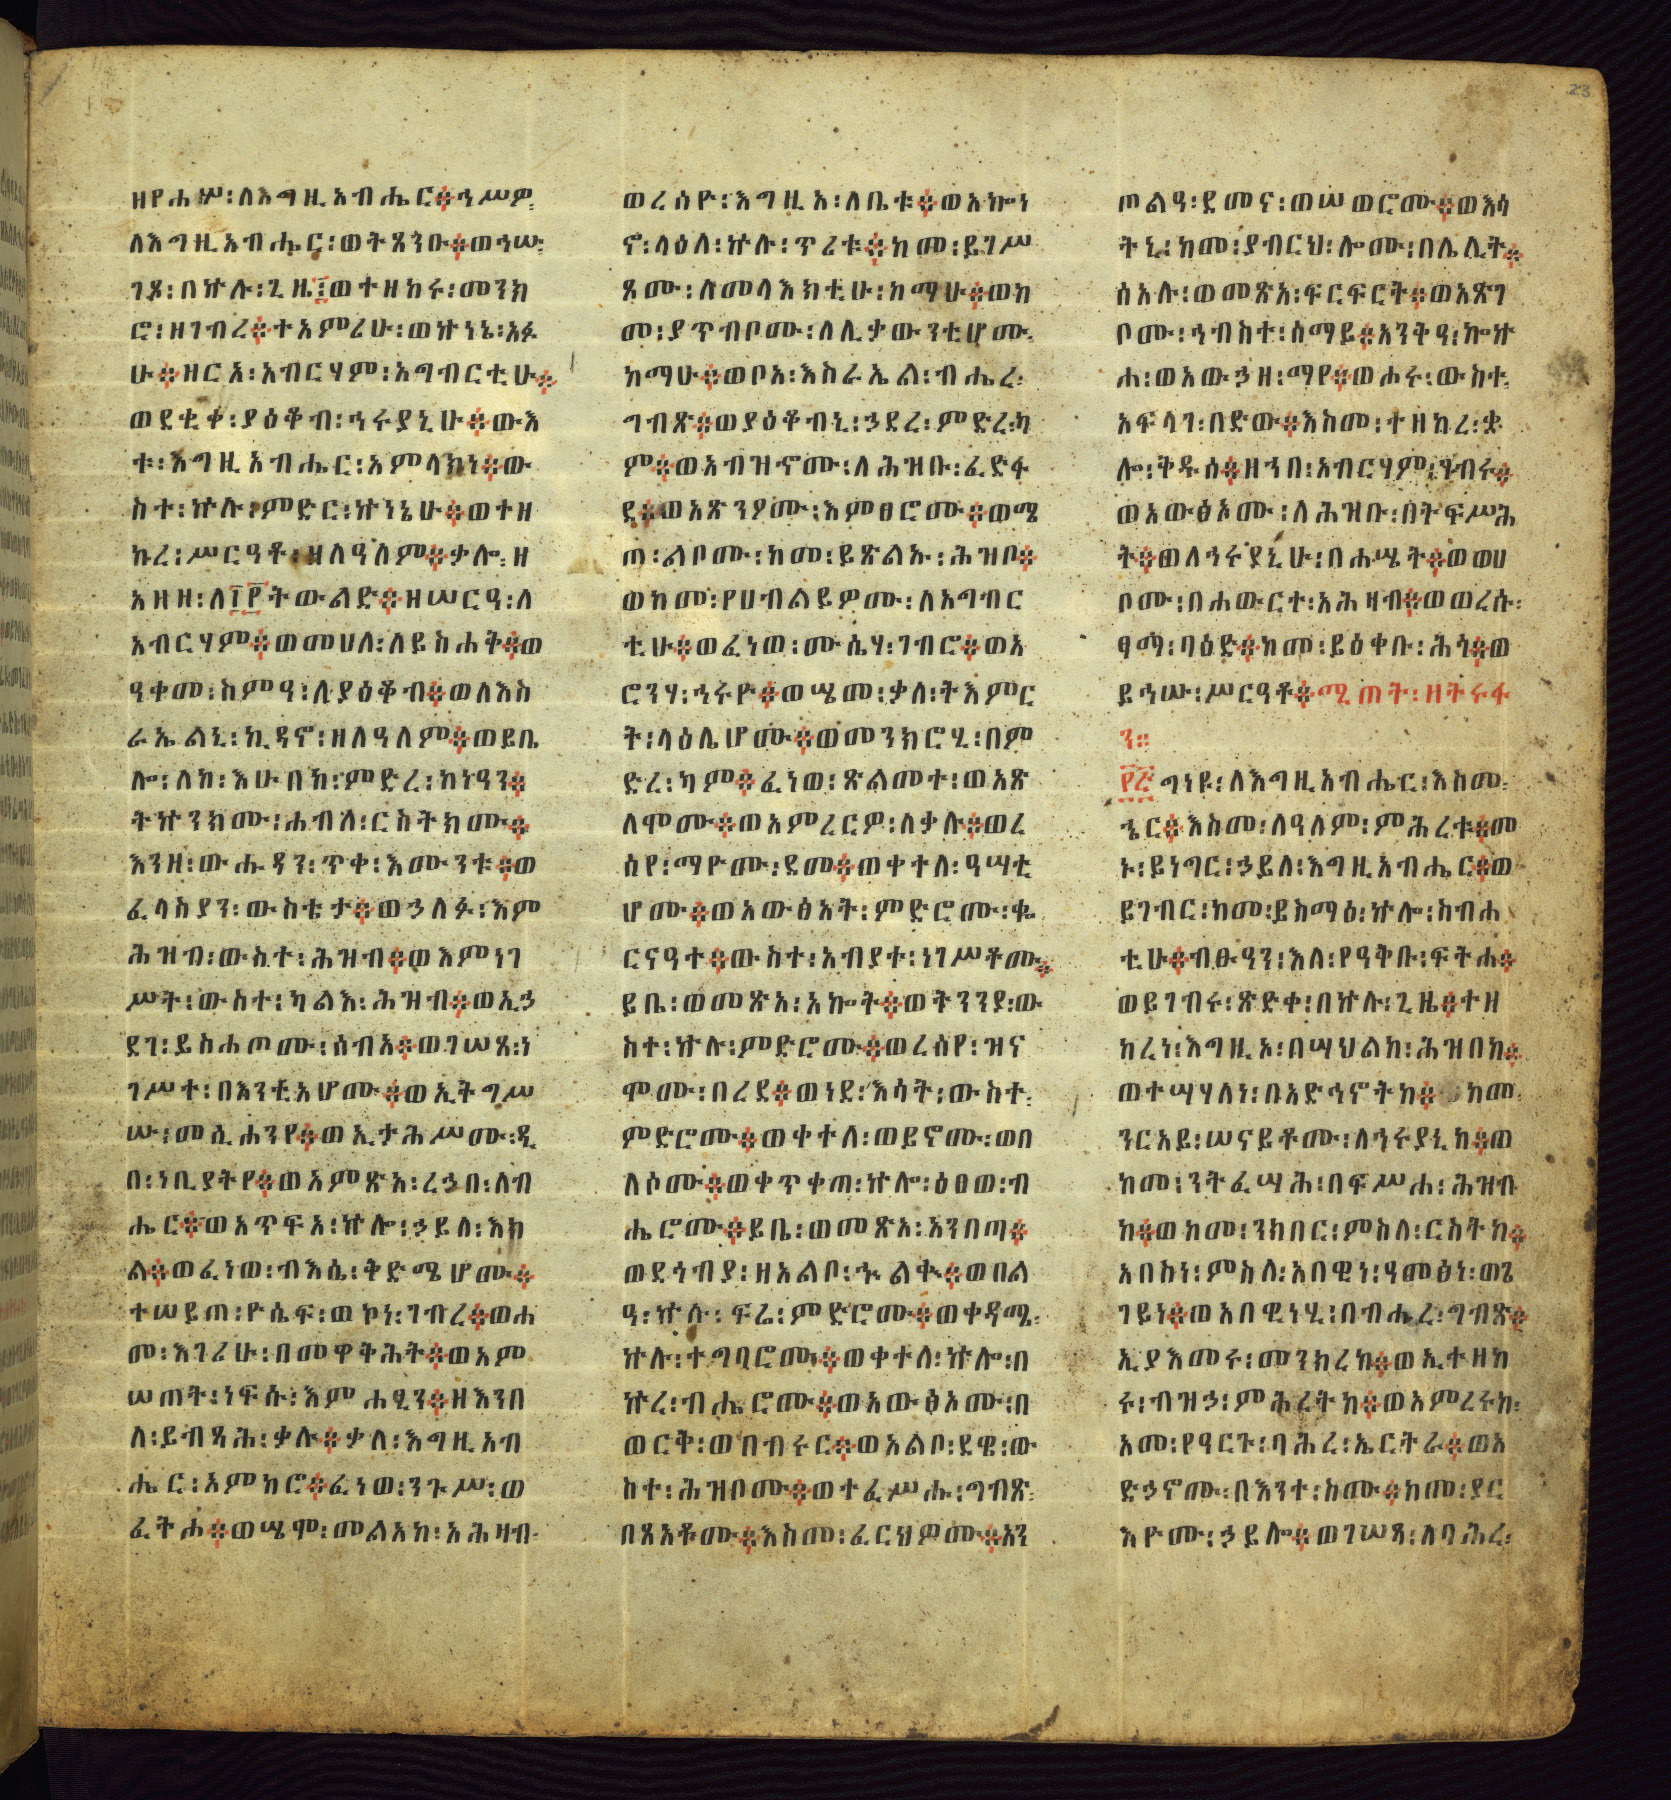 ዘየሐሦ፡ለእግዚአብሔር፨ኅሥዎ፡
ለእግዚአብሔር፡ወትጸንዑ፨ወኅሡ፡
ገጾ፡በኵሉ፡ጊዜ፤ወተዘከሩ፡መንክ
ሮ፡ዘገብረ፨ተአምሪሁ፡ወኵነኔ፡አፉ
ሁ፨ዘርአ፡አብርሃም፡አግብርቲሁ፨
ወደቂቀ፡ያዕቆብ፡ኅሩያኒሁ፨ውእ
ቱ፡እግዚአብሔር፡አምላክነ፨ው
ስተ፡ኵሉ፡ምድር፡ኵነኔሁ፨ወተዘ
ከረ፡ሥርዓቶ፡ዘለዓለም፨ቃሎ፡ዘ
አዘዘ፡ለ፲፻ትውልድ፨ዘሠርዓ፡ለ
አብርሃም፨ወመሀለ፡ለይስሐቅ፨ወ
ዓቀመ፡ስምዓ፡ለያዕቆብ፨ወለእስ
ራኤልኒ፡ኪዳኖ፡ዘለዓለም፨ወይቤ
ሎ፡ለከ፡እሁበከ፡ምድረ፡ከነዓን፨
ትኵንክሙ፡ሐብለ፡ርስትክሙ፨
እንዘ፡ውሑዳን፡ጥቀ፡እሙንቱ፨ወ
ፈላስያን፡ውስቴታ፨ወኃለፉ፡እም
ሕዝብ፡ውስተ፡ሕዝብ፨ወእምነገ
ሥት፡ውስተ፡ካልእ፡ሕዝብ፨ወኢኃ
ደገ፡ይስሐጦሙ፡ሰብእ፨ወገሠጸ፡ነ
ገሥተ፡በእንቲአሆሙ፨ወኢትግሥ
ሡ፡መሲሐንየ፨ወኢታሕሥሙ፡ዲ
በ፡ነቢያትየ፨ወአምጽአ፡ረኃበ፡ለብ
ሔር፨ወአጥፍአ፡ኵሎ፡ኃይለ፡እክ
ል፨ወፈነወ፡ብእሴ፡ቅድሜሆሙ፨
ተሠይጠ፡ዮሴፍ፡ወኮነ፡ገብረ፨ወሐ
መ፡እገሪሁ፡በመዋቅሕት፨ወአም
ሠጠት፡ነፍሱ፡እምሐፂን፨ዘእንበ
ለ፡ይብጻሕ፡ቃሉ፨ቃለ፡እግዚአብ
ሔር፡አምከሮ፨ፈነወ፡ንጉሥ፡ወ
ፈትሐ፨ወሤሞ፡መልአከ፡አሕዛብ፡
ወረሰዮ፡እግዚአ፡ለቤቱ፨ወአኰነ
ኖ፡ላዕለ፡ኵሉ፡ጥሪቱ፨ከመ፡ይገሥ
ጾሙ፡ለመላእክቲሁ፡ከማሁ፨ወከ
መ፡ያጥብቦሙ፡ለሊቃውንቲሆሙ፡
ከማሁ፨ወቦአ፡እስራኤል፡ብሔረ፡
ግብጽ፨ወያዕቆብኒ፡ኃደረ፡ምድረ፡ካ
ም፨ወአብዝኖሙ፡ለሕዝቡ፡ፈድፋ
ደ፨ወአጽንዖሙ፡እምፀሮሙ፨ወሜ
ጠ፡ልቦሙ፡ከመ፡ይጽልኡ፡ሕዝቦ፨
ወከመ፡የሀብልይዎሙ፡ለአግብር
ቲሁ፨ወፈነወ፡ሙሴሃ፡ገብሮ፨ወአ
ሮንሃ፡ኅሩዮ፨ወሤመ፡ቃለ፡ትእምር
ት፡ላዕሌሆሙ፨ወመንክሮሂ፡በም
ድረ፡ካም፨ፈነወ፡ጽልመተ፡ወአጽ
ለሞሙ፨ወአምረርዎ፡ለቃሉ፨ወረ
ሰየ፡ማዮሙ፡ደመ፨ወቀተለ፡ዓሣቲ
ሆሙ፨ወአውፅአት፡ምድሮሙ፡ቈ
ርናዓተ፨ውስተ፡አብያተ፡ነገሥቶሙ፨
ይቤ፡ወመጽአ፡አኮት፨ወትንንያ፡ው
ስተ፡ኵሉ፡ምድሮሙ፨ወረሰየ፡ዝና
ሞሙ፡በረደ፨ወነደ፡እሳት፡ውስተ፡
ምድሮሙ፨ወቀተለ፡ወይኖሙ፡ወበ
ለሶሙ፨ወቀጥቀጠ፡ኵሎ፡ዕፀወ፡ብ
ሔሮሙ፨ይቤ፡ወመጽአ፡አንበጣ፨
ወደጎብያ፡ዘአልቦ፡ኍልቍ፨ወበል
ዓ፡ኵሉ፡ፍሬ፡ምድሮሙ፨ወቀዳሜ፡
ኵሉ፡ተግባሮሙ፨ወቀተለ፡ኵሎ፡በ
ኵረ፡ብሔሮሙ፨ወአውፅኦሙ፡በ
ወርቅ፡ወበብሩር፨ወአልቦ፡ደዌ፡ው
ስተ፡ሕዝቦሙ፨ወተፈሥሑ፡ግብጽ፡
በጸአቶሙ፨እስመ፡ፈርህዎሙ፨አን
ጦልዓ፡ደመና፡ወሠወሮሙ፨ወእሳ
ትኒ፡ከመ፡ያብርህ፡ሎሙ፡በሌሊት፨
ሰአሉ፡ወመጽአ፡ፍርፍርት፨ወአጽገ
ቦሙ፡ኅብስተ፡ሰማይ፨አንቅዓ፡ኰኵ
ሐ፡ወአውኃዘ፡ማየ፨ወሖሩ፡ውስተ፡
አፍላገ፡በድው፨እስመ፡ተዘከረ፡ቃ
ሎ፡ቅዱሰ፨ዘኀበ፡አብርሃም፡ገብሩ፨
ወአውፅኦሙ፡ለሕዝቡ፡በትፍሥሕ
ት፨ወለኅሩያኒሁ፡በሐሤት፨ወወሀ
ቦሙ፡በሐውርተ፡አሕዛብ፨ወወረሱ፡
ፃማ፡ባዕድ፨ከመ፡ይዕቀቡ፡ሕጎ፨ወ
ይኅሡ፡ሥርዓቶ፨ሚጠት፡ዘትሩፋ
ን።
፻፭ግነዩ፡ለእግዚአብሔር፡እስመ፡
ኄር፨እስመ፡ለዓለም፡ምሕረቱ፨መ
ኑ፡ይነግር፡ኃይለ፡እግዚአብሔር፨ወ
ይገብር፡ከመ፡ይስማዕ፡ኵሎ፡ስብሐ
ቲሁ፨ብፁዓን፡እለ፡የዓቅቡ፡ፍትሐ፨
ወይገብሩ፡ጽድቀ፡በኵሉ፡ጊዜ፨ተዘ
ከረነ፡እግዚኦ፡በሣህልከ፡ሕዝበከ፨
ወተሣሃለነ፡በአድኅኖትከ፨ከመ፡
ንርአይ፡ሠናይቶሙ፡ለኅሩያኒከ፨ወ
ከመ፡ንትፈሣሕ፡በፍሥሐ፡ሕዝብ
ከ፨ወከመ፡ንክበር፡ምስለ፡ርስትከ፨
አበስነ፡ምስለ፡አበዊነ፡ዓመፅነ፡ወጌ
ገይነ፨ወአበዊነሂ፡በብሔረ፡ግብጽ፨
ኢያእመሩ፡መንክረከ፨ወኢተዘከ
ሩ፡ብዝኃ፡ምሕረትከ፨ወአምረሩከ፡
አመ፡የዓርጉ፡ባሕረ፡ኤርትራ፨ወአ
ድኃኖሙ፡በእንተ፡ስሙ፨ከመ፡ያር
እዮሙ፡ኃይሎ፨ወገሠጻ፡ለባሕረ፡